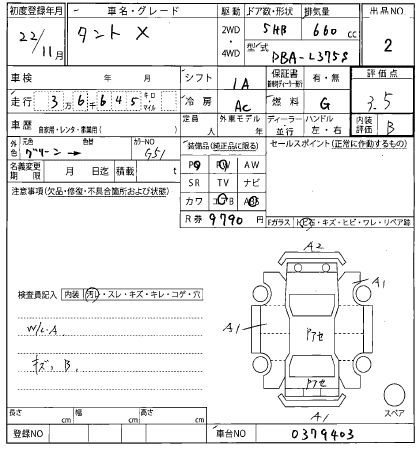 初度登録年月 車名・グレード 駆動 ドア数・形状 排気量 出品NO
22/11月 タント X 2WD ・ 4WD 5HB 660 cc 2
型式 DBA-L375S
車検 年 月 シフト IA 保証書 有・無 評価点
走行 3万6千645 キロ・マイル 冷房 AC 燃料 G 3.5
車歴 自家用・レンタ・事業用( ) 定員 人 外車モデル 年 ディーラー・並行 ハンドル 左・右 内装評価 B
外色 元色 グリーン→ 色替 カラーNO G51 装備品(純正品に限る) セールスポイント(正常に作動するもの)
名義変更期限 月 日迄 積載 t PS PW AW
注意事項(欠品・修復・不具合箇所および状態) SR TV ナビ
カワ エアB ABS
R券 9790 円 Fガラス 飛石・キズ・ヒビ・ワレ・リペア跡
A2
検査員記入 内装 汚レ・スレ・キズ・キレ・コゲ・穴 A1
A1 Pアセ
W/L A
キズ、B、
Pアセ
A1 スペア
長さ cm 幅 cm 高さ cm
登録NO 車台NO 0379403